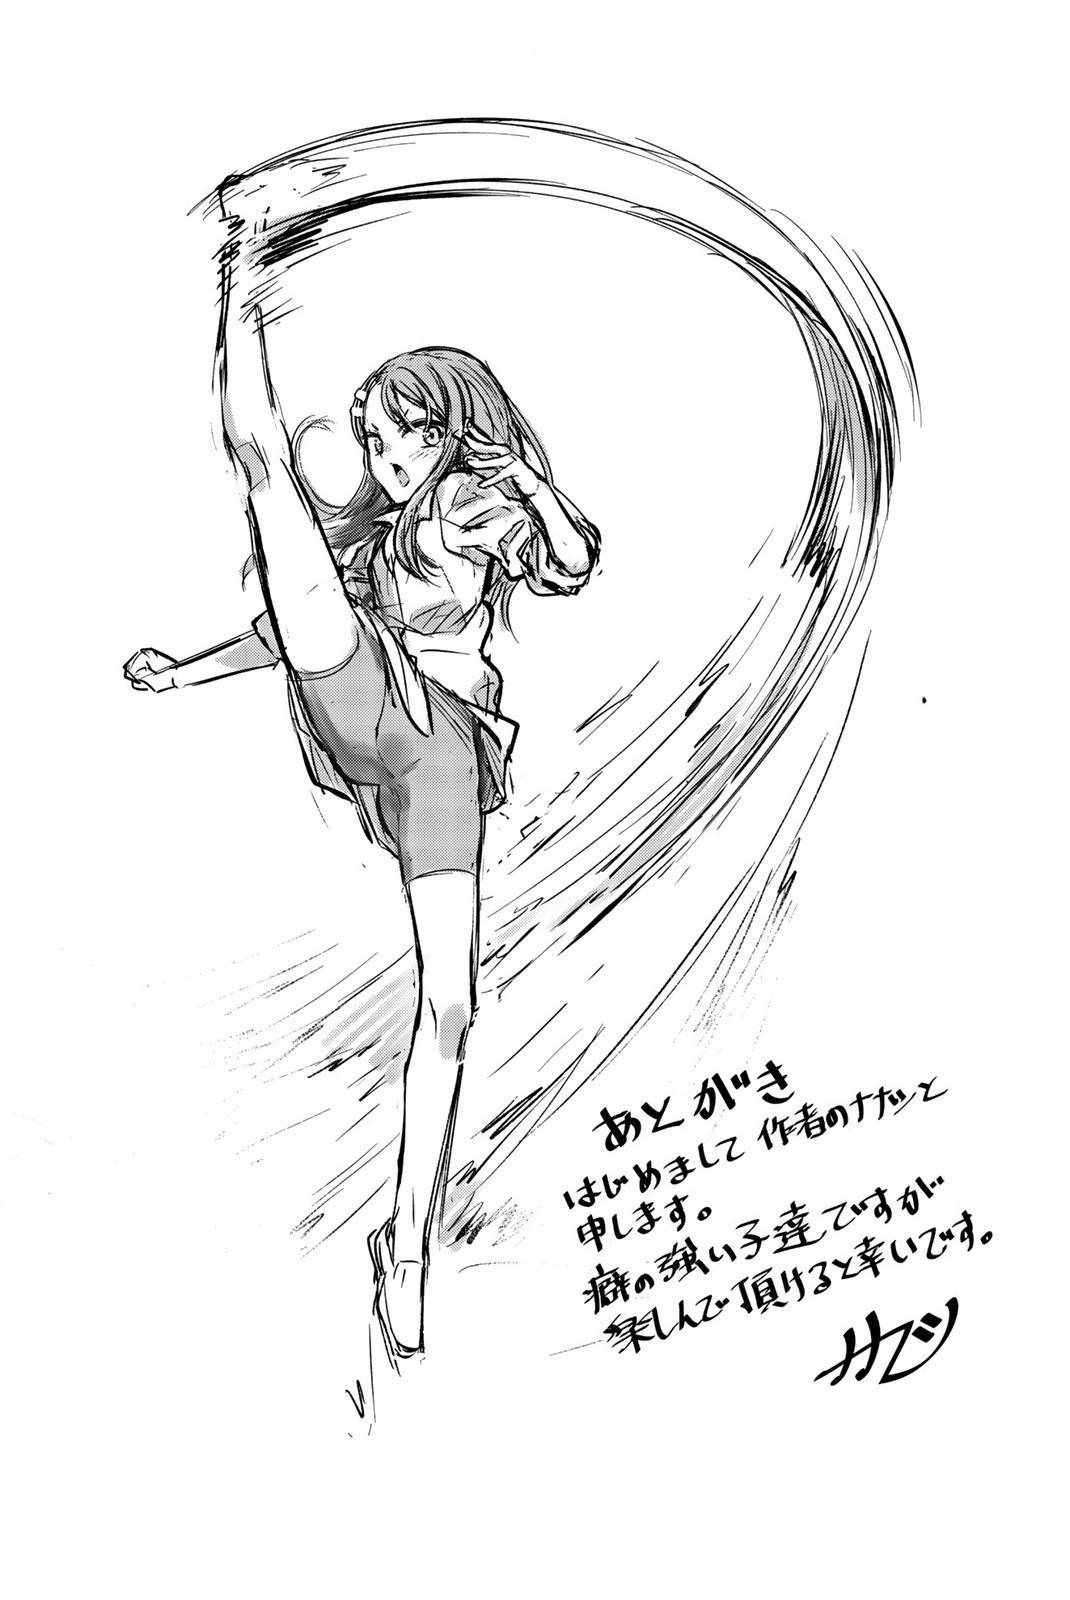 あとがき
はじめまして 作者のナナツと
申します。
癖の強い子達ですが
楽しんで頂けると幸いです。
ナナツ